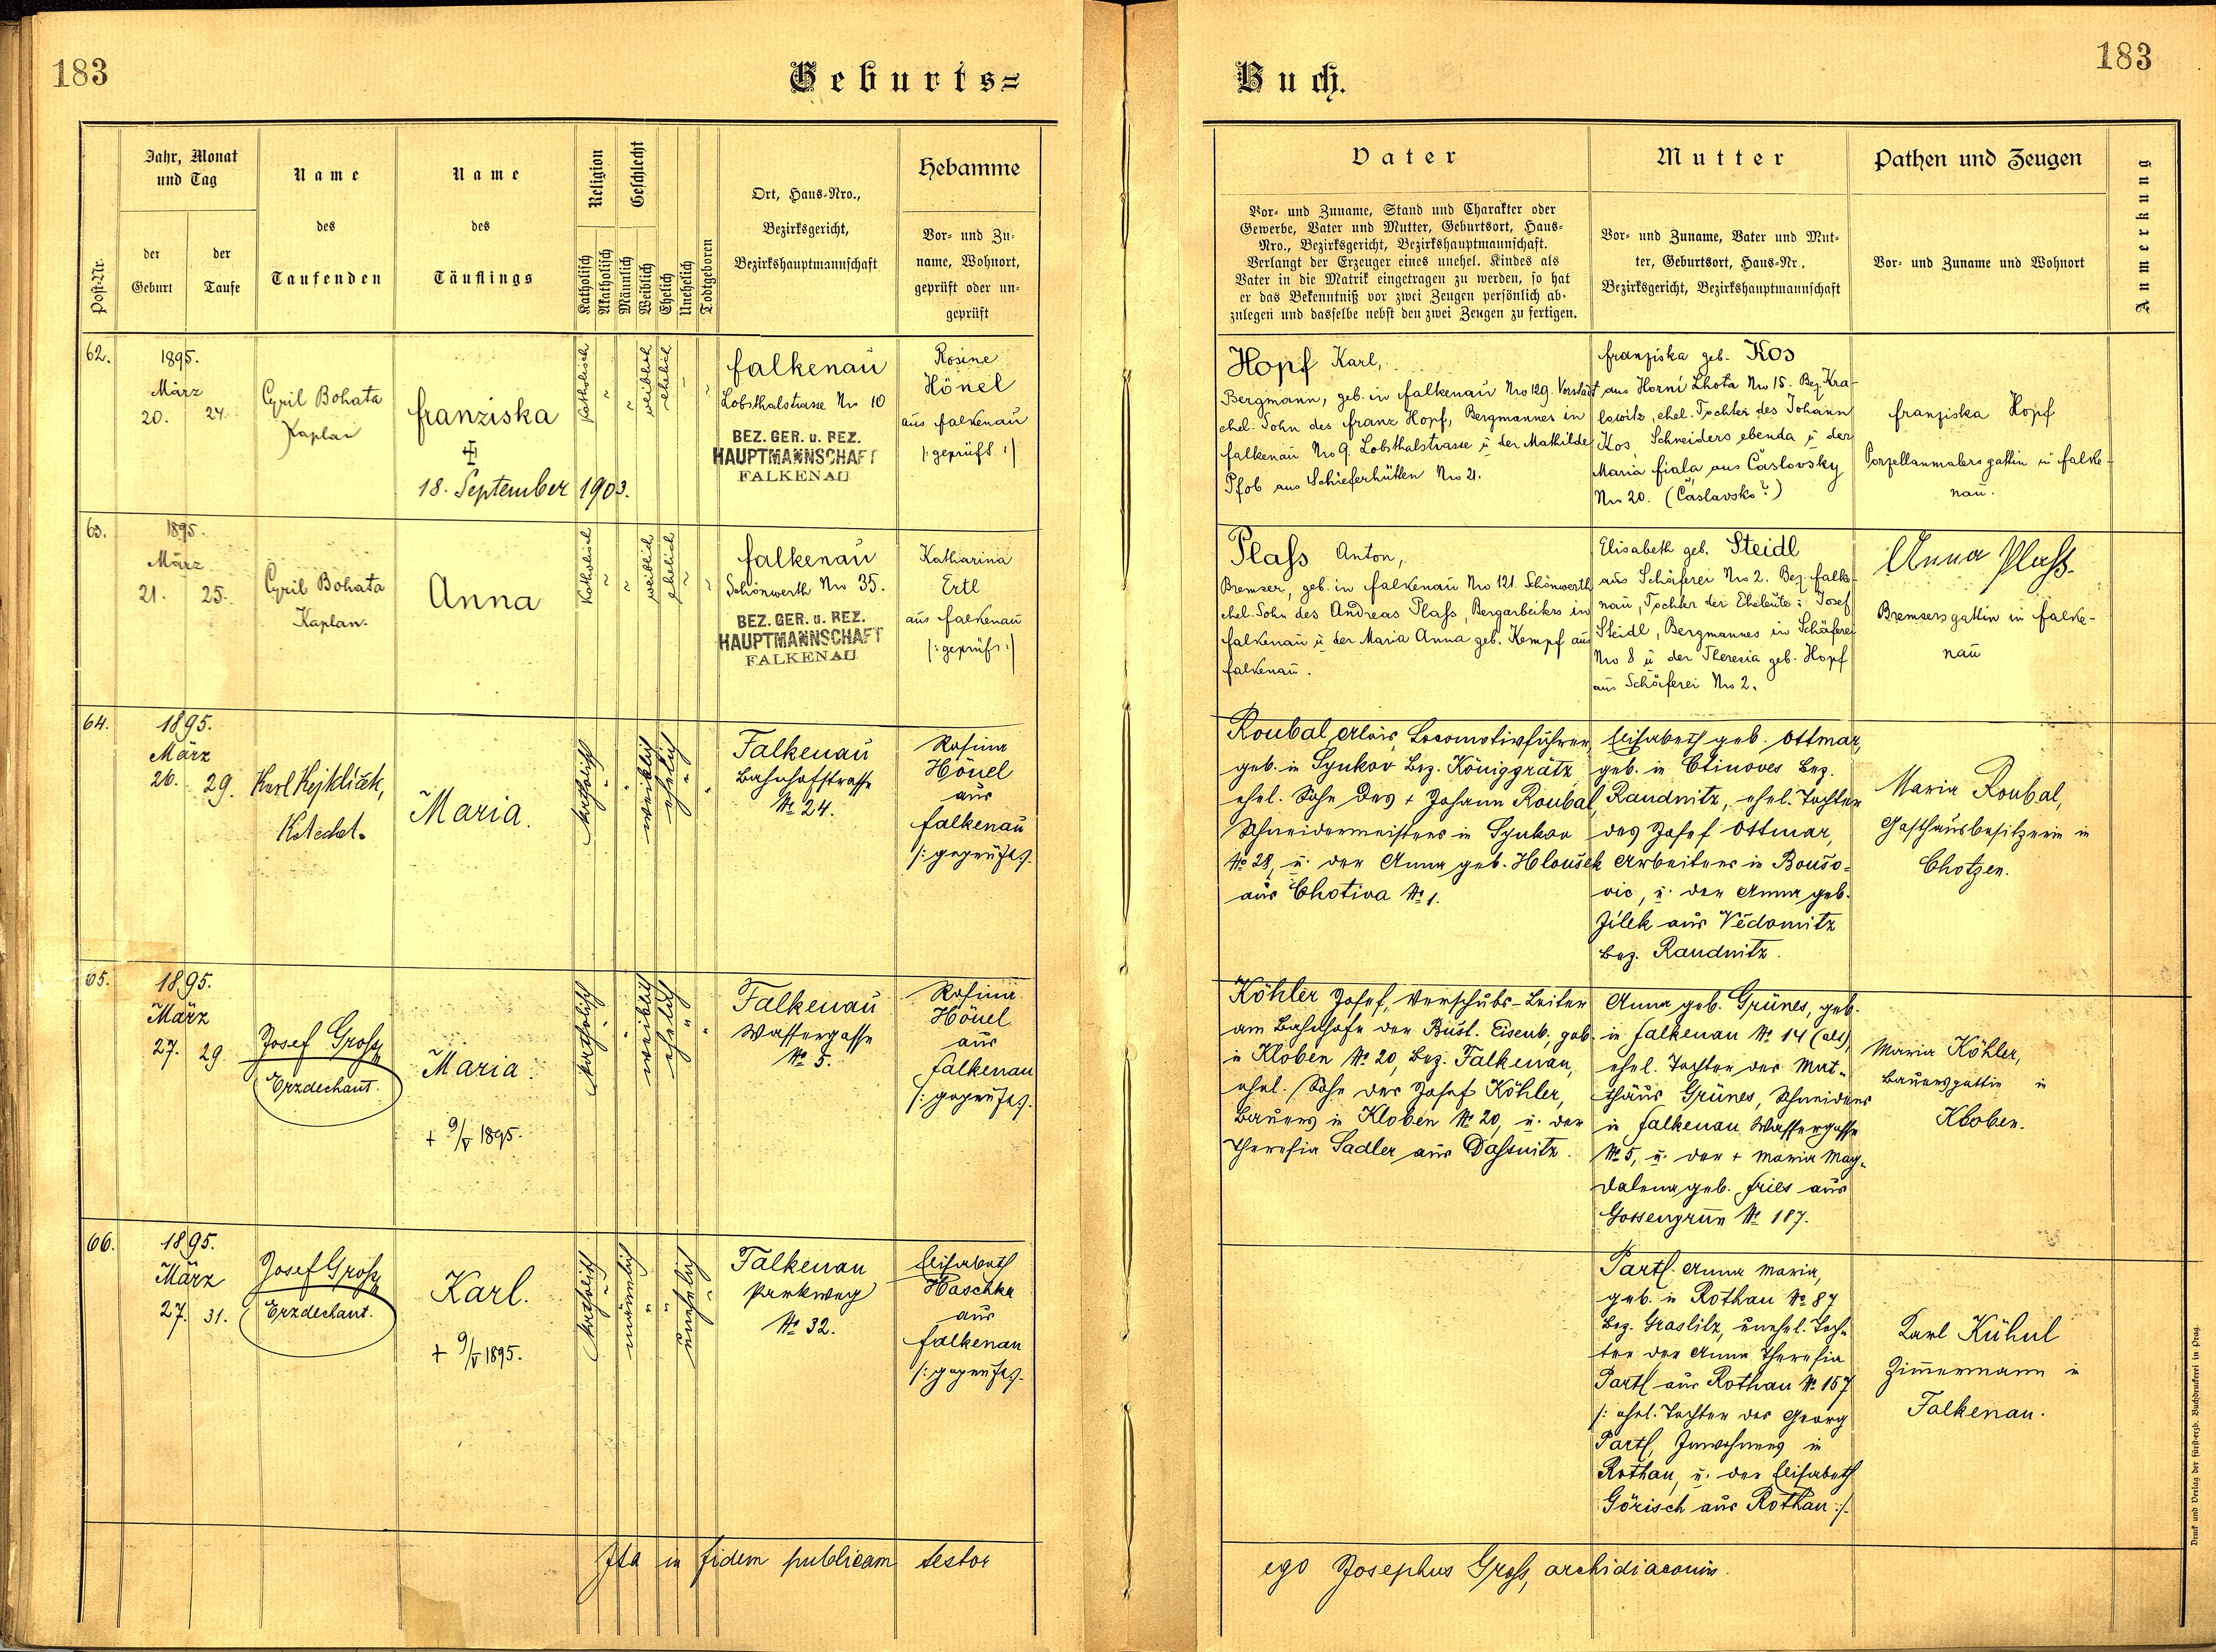 183
Geburts=
Buch.
183
Post-Nr.
Jahr, Monat
und Tag
der
Geburt
der
Taufe
Name
des
Taufenden
Name
des
Täuflings
Religion
Katholisch
Akatholisch
Geschlecht
Männlich
Weiblich
Ehelich
Unehelich
Todtgeboren
Ort, Haus-Nro.,
Bezirksgericht,
Bezirkshauptmannschaft
Hebamme
Vor- und Zu-
name, Wohnort,
geprüft oder un-
geprüft
Vater
Vor- und Zuname, Stand und Charakter oder
Gewerbe, Vater und Mutter, Geburtsort, Haus-
Nro., Bezirksgericht, Bezirkshauptmannschaft.
Verlangt der Erzeuger eines unehel. Kindes als
Vater in die Matrik eingetragen zu werden, so hat
er das Bekenntniß vor zwei Zeugen persönlich ab-
zulegen und dasselbe nebst den zwei Zeugen zu fertigen.
Mutter
Vor- und Zuname, Vater und Mut-
ter, Geburtsort, Haus-Nr.,
Bezirksgericht, Bezirkshauptmannschaft
Pathen und Zeugen
Vor- und Zuname und Wohnort
Anmerkung
62.
1895.
März
20. 24.
Cyril Bohata
Kaplan
Franziska
18. September 1903.
katholisch
weiblich
ehelich
Falkenau
Lobsthalstrasse No 10
BEZ. GER. u. BEZ.
HAUPTMANNSCHAFT
FALKENAU
Rosine
Hönel
aus Falkenau
/: geprüft :/
Hopf Karl,
Bergmann, geb. in Falkenau No 129. Vorstadt
ehel. Sohn des Franz Hopf, Bergmannes in
Falkenau No 9. Lobsthalstrasse u der Mathilde
Pfob aus Schieferhütten No 21.
Franziska geb. Kos
aus Horní Lhota No 15. Bez. Kra-
lowitz, ehel. Tochter des Johann
Kos, Schneiders ebenda u der
Maria Fiala aus Čáslovsky
No 20. (Čáslavsko?)
Franziska Hopf
Porzellanmalersgattin in Falke-
nau.
63.
1895.
März
21. 25.
Cyril Bohata
Kaplan.
Anna
katholisch
weiblich
ehelich
Falkenau
Schönwerth No 35.
BEZ. GER. u. BEZ.
HAUPTMANNSCHAFT
FALKENAU
Katharina
Ertl
aus Falkenau
/: geprüft :/
Plass Anton,
Bremser, geb. in Falkenau No 121. Schönwerth
ehel. Sohn des Andreas Plass, Bergarbeiters in
Falkenau u der Maria Anna geb. Kempf aus
Falkenau.
Elisabeth geb. Steidl
aus Schäferei No 2. Bez. Falke-
nau, Tochter der Eheleute: Josef
Steidl, Bergmannes in Schäferei
No 8 u der Theresia geb. Hopf
aus Schäferei No 2.
Anna Plass
Bremsersgattin in Falke-
nau
64.
1895.
März
26. 29.
Karl Hejklíček,
Katechet.
Maria.
katholisch
weiblich
ehelich
Falkenau
Bahnhofstrasse
No 24.
Rosina
Hönel
aus
Falkenau
/: geprüft :/.
Roubal Alois, Locomotivführer,
geb. in Synkov Bez. Königgrätz
ehel. Sohn des + Johann Roubal,
Schneidermeisters in Synkov
No 28, u. der Anna geb. Hloušek
aus Chotiva No 1.
Elisabeth geb. Ottmar,
geb. in Ctinoves Bez.
Raudnitz, ehel. Tochter
des Josef Ottmar,
Arbeiters in Boušo-
vic, u. der Anna geb.
Jílek aus Vědomitz
Bez. Raudnitz.
Maria Roubal,
Gasthausbesitzerin in
Chotzen.
65.
1895.
März
27. 29.
Josef Gross
Erzdechant.
Maria.
+ 9/V 1895.
katholisch
weiblich
ehelich
Falkenau
Wassergasse
No 5.
Rosina
Hönel
aus
Falkenau
/: geprüft :/.
Köhler Josef, Verschubs-Leiter
am Bahnhofe der Büst. Eisenb., geb.
in Kloben No 20, Bez. Falkenau,
ehel. Sohn des Josef Köhler,
Bauers in Kloben No 20, u. der
Theresia Sadler aus Dassnitz.
Anna geb. Grünes, geb.
in Falkenau No 14 (alt),
ehel. Tochter des Mat-
thäus Grünes, Schneiders
in Falkenau Wassergasse
No 5, u. der + Maria Mag-
dalena geb. Fries aus
Gossengrün No 187.
Maria Köhler,
Bauersgattin in
Kloben.
66.
1895.
März
27. 31.
Josef Gross
Erzdechant.
Karl.
+ 9/V 1895.
katholisch
männlich
unehelich
Falkenau
Parkweg
No 32.
Elisabeth
Haschka
aus
Falkenau
/: geprüft :/.
Partl Anna Maria,
geb. in Rothau No 87
Bez. Graslitz, unehel. Toch-
ter der Anna Theresia
Partl aus Rothau No 157
/: ehel. Tochter des Georg
Partl, Inwohners in
Rothau, u. der Elisabeth
Görisch aus Rothau :/.
Karl Kühnl
Zimmermann in
Falkenau.
Ita in fidem publicam testor
ego Josephus Gross, archidiaconus.
Druck und Verlag der fürsterzb. Buchdruckerei in Prag.